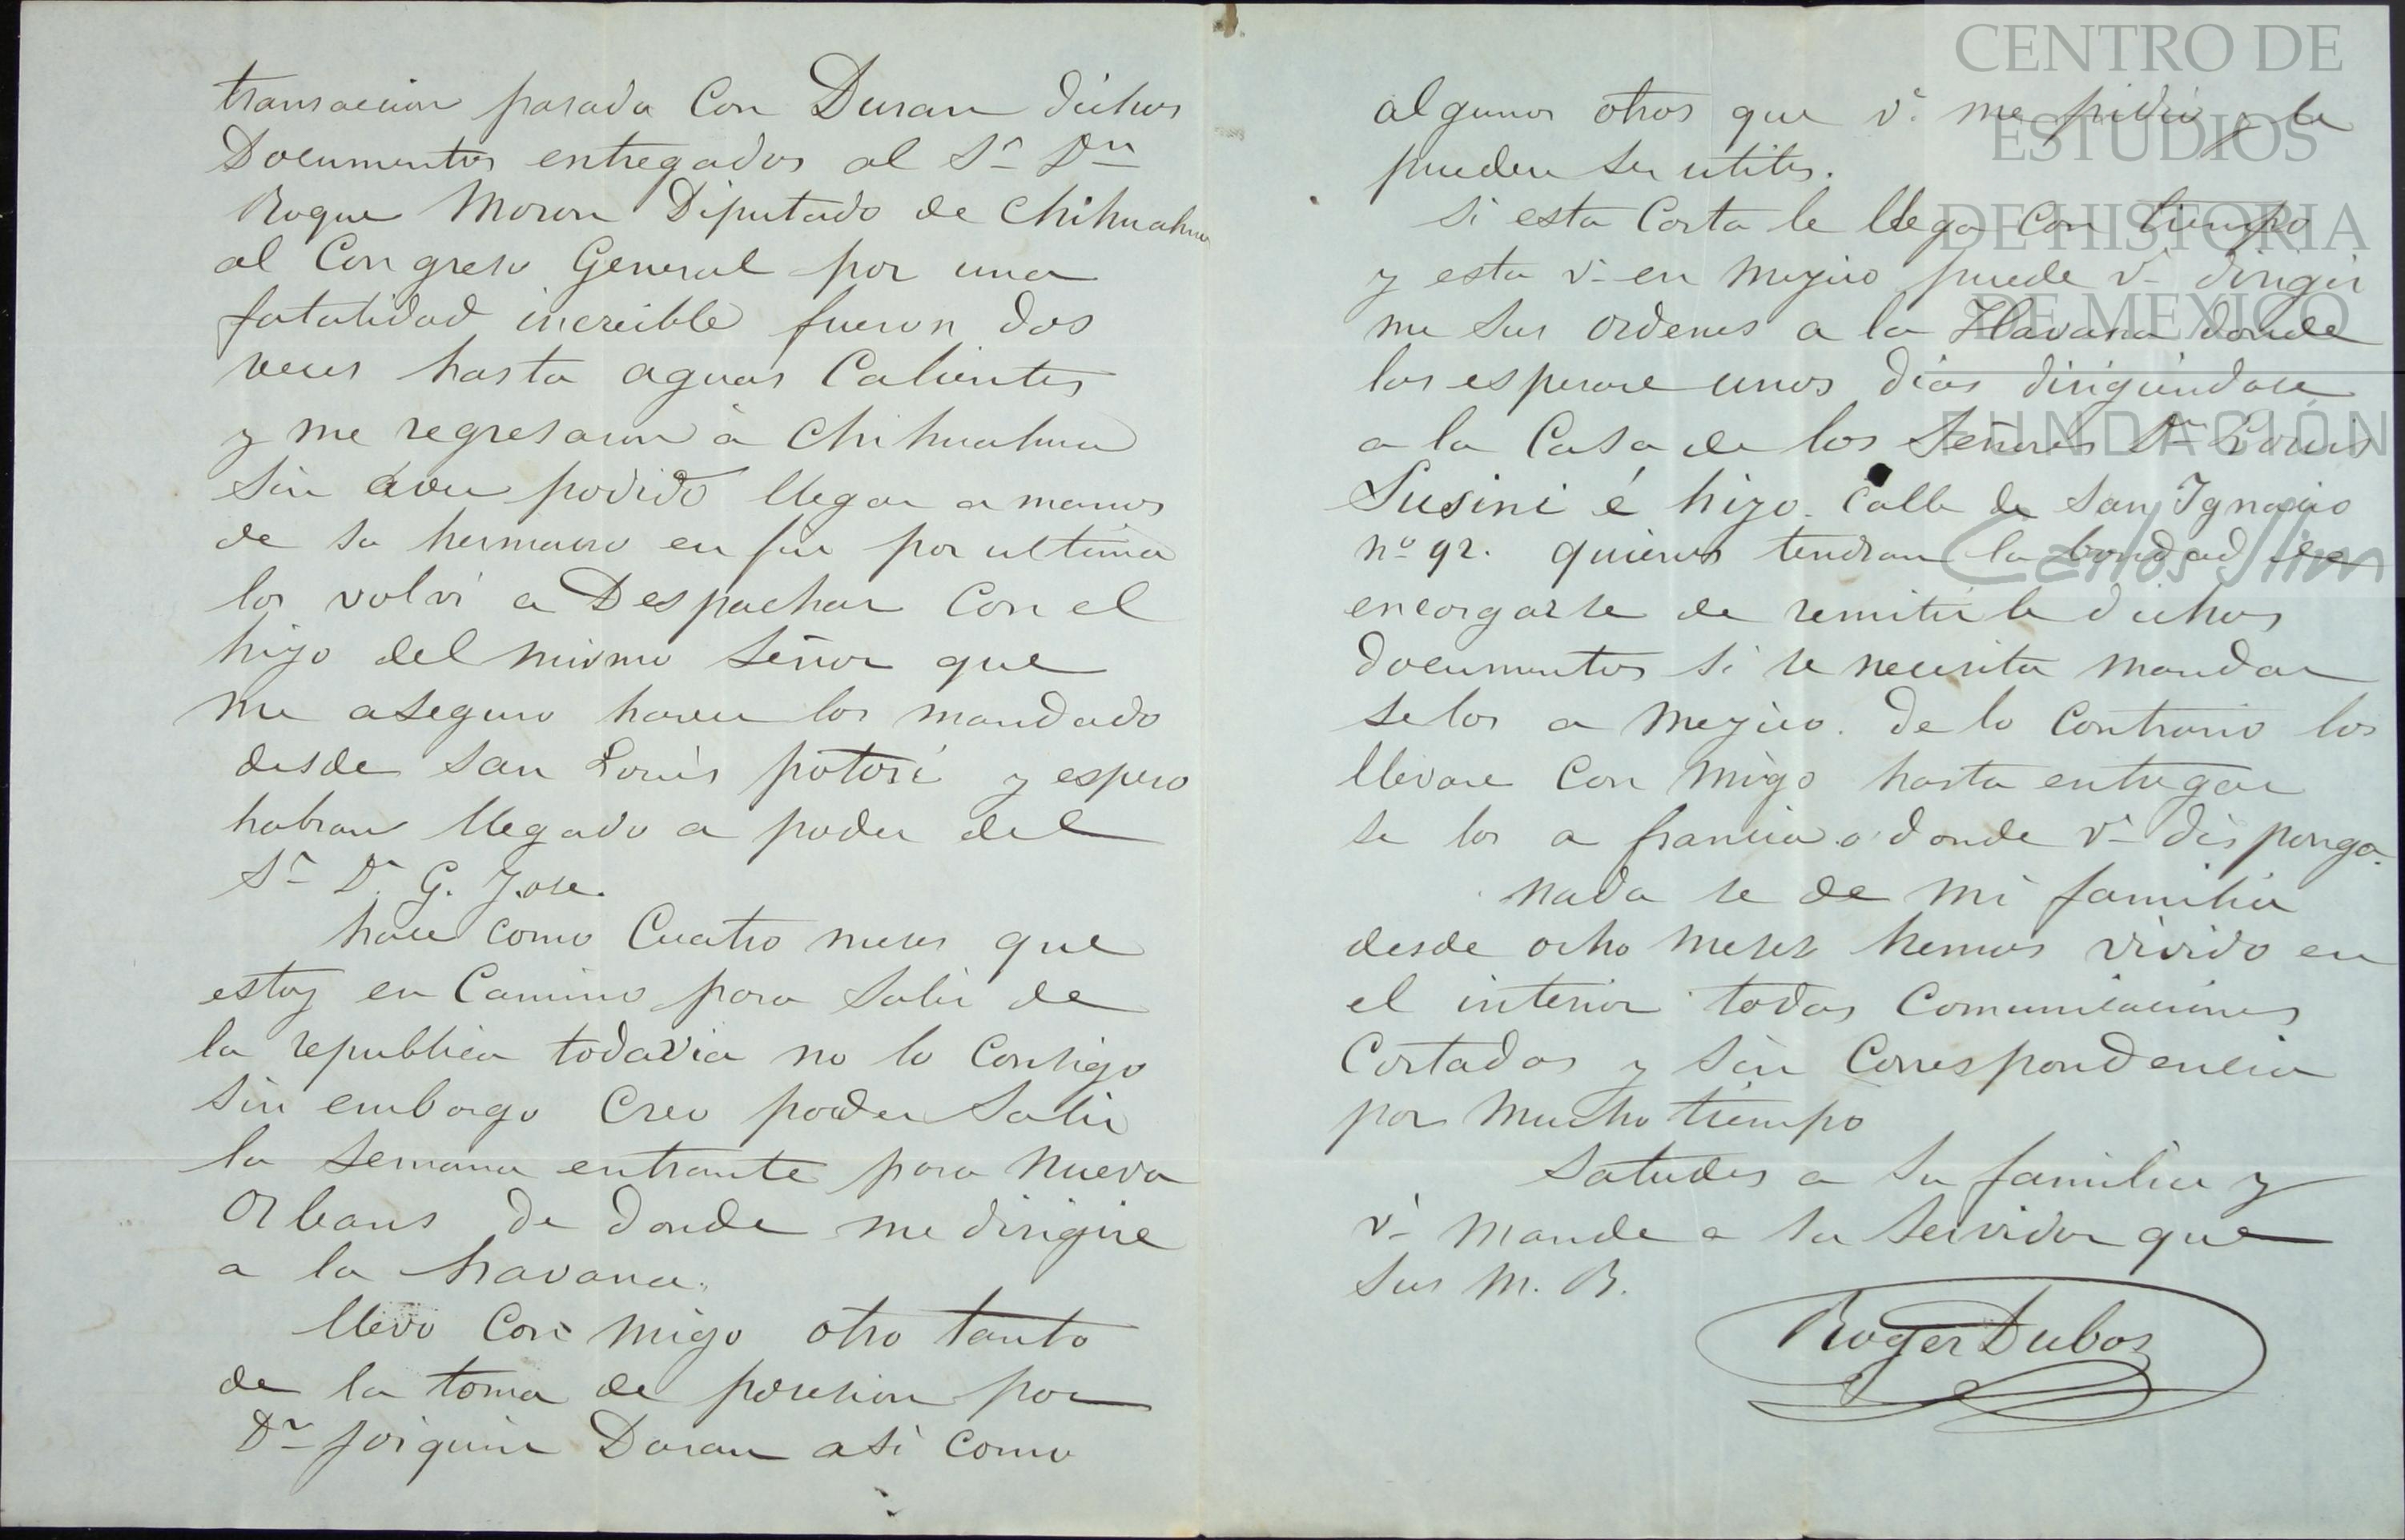 transacion pasada Con Duran dichos
Documentos entregados al Sr Dn
Roque Moron Diputado de Chihuahua
al Congreso General por una
fatalidad increible fueron dos
veces hasta aguas Calientes
y me regresaron a Chihuahua
sin aver podido llegar a manos
de su hermano en fin por ultima
los volvi a Despachar Con el
hijo del mismo señor que
me aseguro haver los mandado
desde san Louis potosi y espero
habran llegado a poder del
Sr D. G. Jose.
hace como Cuatro meses que
estoy en Camino para salir de
la republica todavia no lo Consigo
sin embargo Creo poder salir
la semana entrante para nueva
Orleans de donde me dirigire
a la havana.
llevo Con migo otro tanto
de la toma de posesion por
Dn Joiquin Duran asi como
algunos otros que v. me pidio y le
pueden ser utiles.
si esta Carta le llega Con tiempo
y esta v. en mejico puede v. dirigir
me sus ordenes a la Havana donde
las esperare unos dias dirigiendose
a la Casa de los señores Dn Louis
Susini é hijo. Calle de San Ignacio
nº 92. quienes tendran la bondad de
encargarse de remitirle dichos
documentos si se necesita mandar
selos a mejico. de lo Contrario los
llevare Con migo hasta entregar
se los a francia o donde v. disponga.
nada se de mi familia
desde ocho meses hemos vivido en
el interior todas Comunicaciones
Cortadas y sin Correspondencia
por mucho tiempo
saludes a su familia y
v. mande a su servidor que
sus M. B.
Roger Dubos
CENTRO DE
ESTUDIOS
DE HISTORIA
DE MEXICO
FUNDACIÓN
Carlos Slim